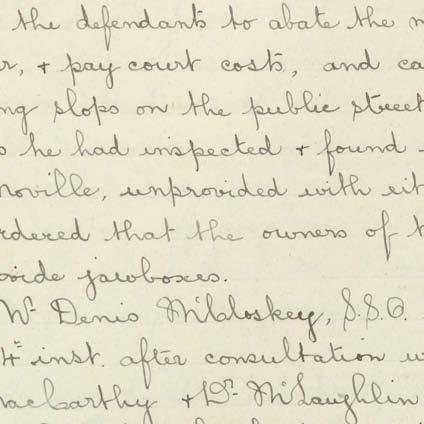 the defendants to abate the
r, + pay court costs, and ca
ng slops on the public street
he had inspected + found
noville, unprovided with eit
rdered that the owners of t
oide jawboxes.
Mr Denis McCloskey, S.S.O.
4th inst. after consultation w
MacCarthy + Dr McLaughlin